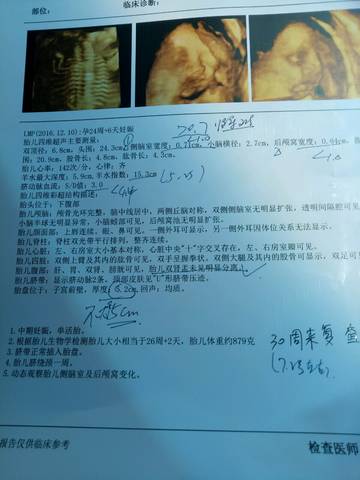 部位:
临床诊断:
LMP(2016.12.10):孕24周+6天妊娠
胎儿四维超声主要测量:
双顶径: 6.8cm, 头围: 24.3cm, 侧脑室宽度: 0.71cm, 小脑横径: 2.7cm, 后颅窝宽度: 0.94cm,
围: 20.9cm, 股骨长: 4.8cm, 肱骨长: 4.3cm.
胎儿心率: 142次/分, 心律: 齐
羊水最大深度: 5.9cm, 羊水指数: 15.3cm
脐动脉血流: S/D值: 3.0
胎儿四维彩超结构描述:
胎头位于: 下腹部
胎儿颅脑: 颅骨光环完整, 脑中线居中, 两侧丘脑对称, 双侧侧脑室无明显扩张, 透明间隔腔可见
小脑半球无明显异常, 小脑蚓部可见, 后颅窝池无明显扩张。
胎儿颜面部: 上唇连续, 眼、鼻可见, 一侧外耳可显示, 另一侧外耳因体位关系无法显示。
胎儿脊柱: 脊柱双光带平行排列, 整齐连续。
胎儿心脏: 左、右房室大小基本对称, 心脏中央"十"字交叉存在, 左、右房室瓣可见。
胎儿四肢: 双侧上臂及其内的肱骨可见, 双手呈握拳状, 双侧大腿及其内的股骨可显示, 双足可见
胎儿腹部: 肝、胃、双肾、膀胱可见, 胎儿双肾未见明显分离。
胎儿脐带: 显示脐动脉2条, 颈部皮肤见"U"形脐带压迹。
胎盘位于: 子宫前壁, 厚度: 5.2cm, 回声: 均质。
cm
1.中期妊娠, 单活胎。
2.根据胎儿生物学检测胎儿大小相当于26周+2天, 胎儿体重约879克
3.脐带正常插入胎盘。
4.胎儿脐绕颈一周。
5.动态观察胎儿侧脑室及后颅窝变化。
30周来复查
报告仅供临床参考
检查医师